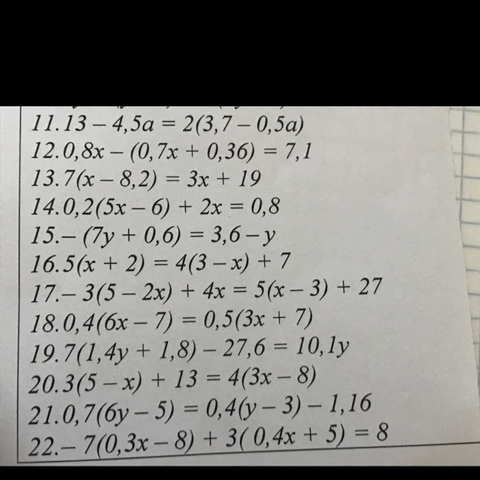 11.13 – 4,5a = 2(3,7 – 0,5a)
12.0,8x – (0,7x + 0,36) = 7,1
13.7(x – 8,2) = 3x + 19
14.0,2(5x – 6) + 2x = 0,8
15.– (7y + 0,6) = 3,6 – y
16.5(x + 2) = 4(3 – x) + 7
17.– 3(5 – 2x) + 4x = 5(x – 3) + 27
18.0,4(6x – 7) = 0,5(3x + 7)
19.7(1,4y + 1,8) – 27,6 = 10,1y
20.3(5 – x) + 13 = 4(3x – 8)
21.0,7(6y – 5) = 0,4(y – 3) – 1,16
22.– 7(0,3x – 8) + 3( 0,4x + 5) = 8